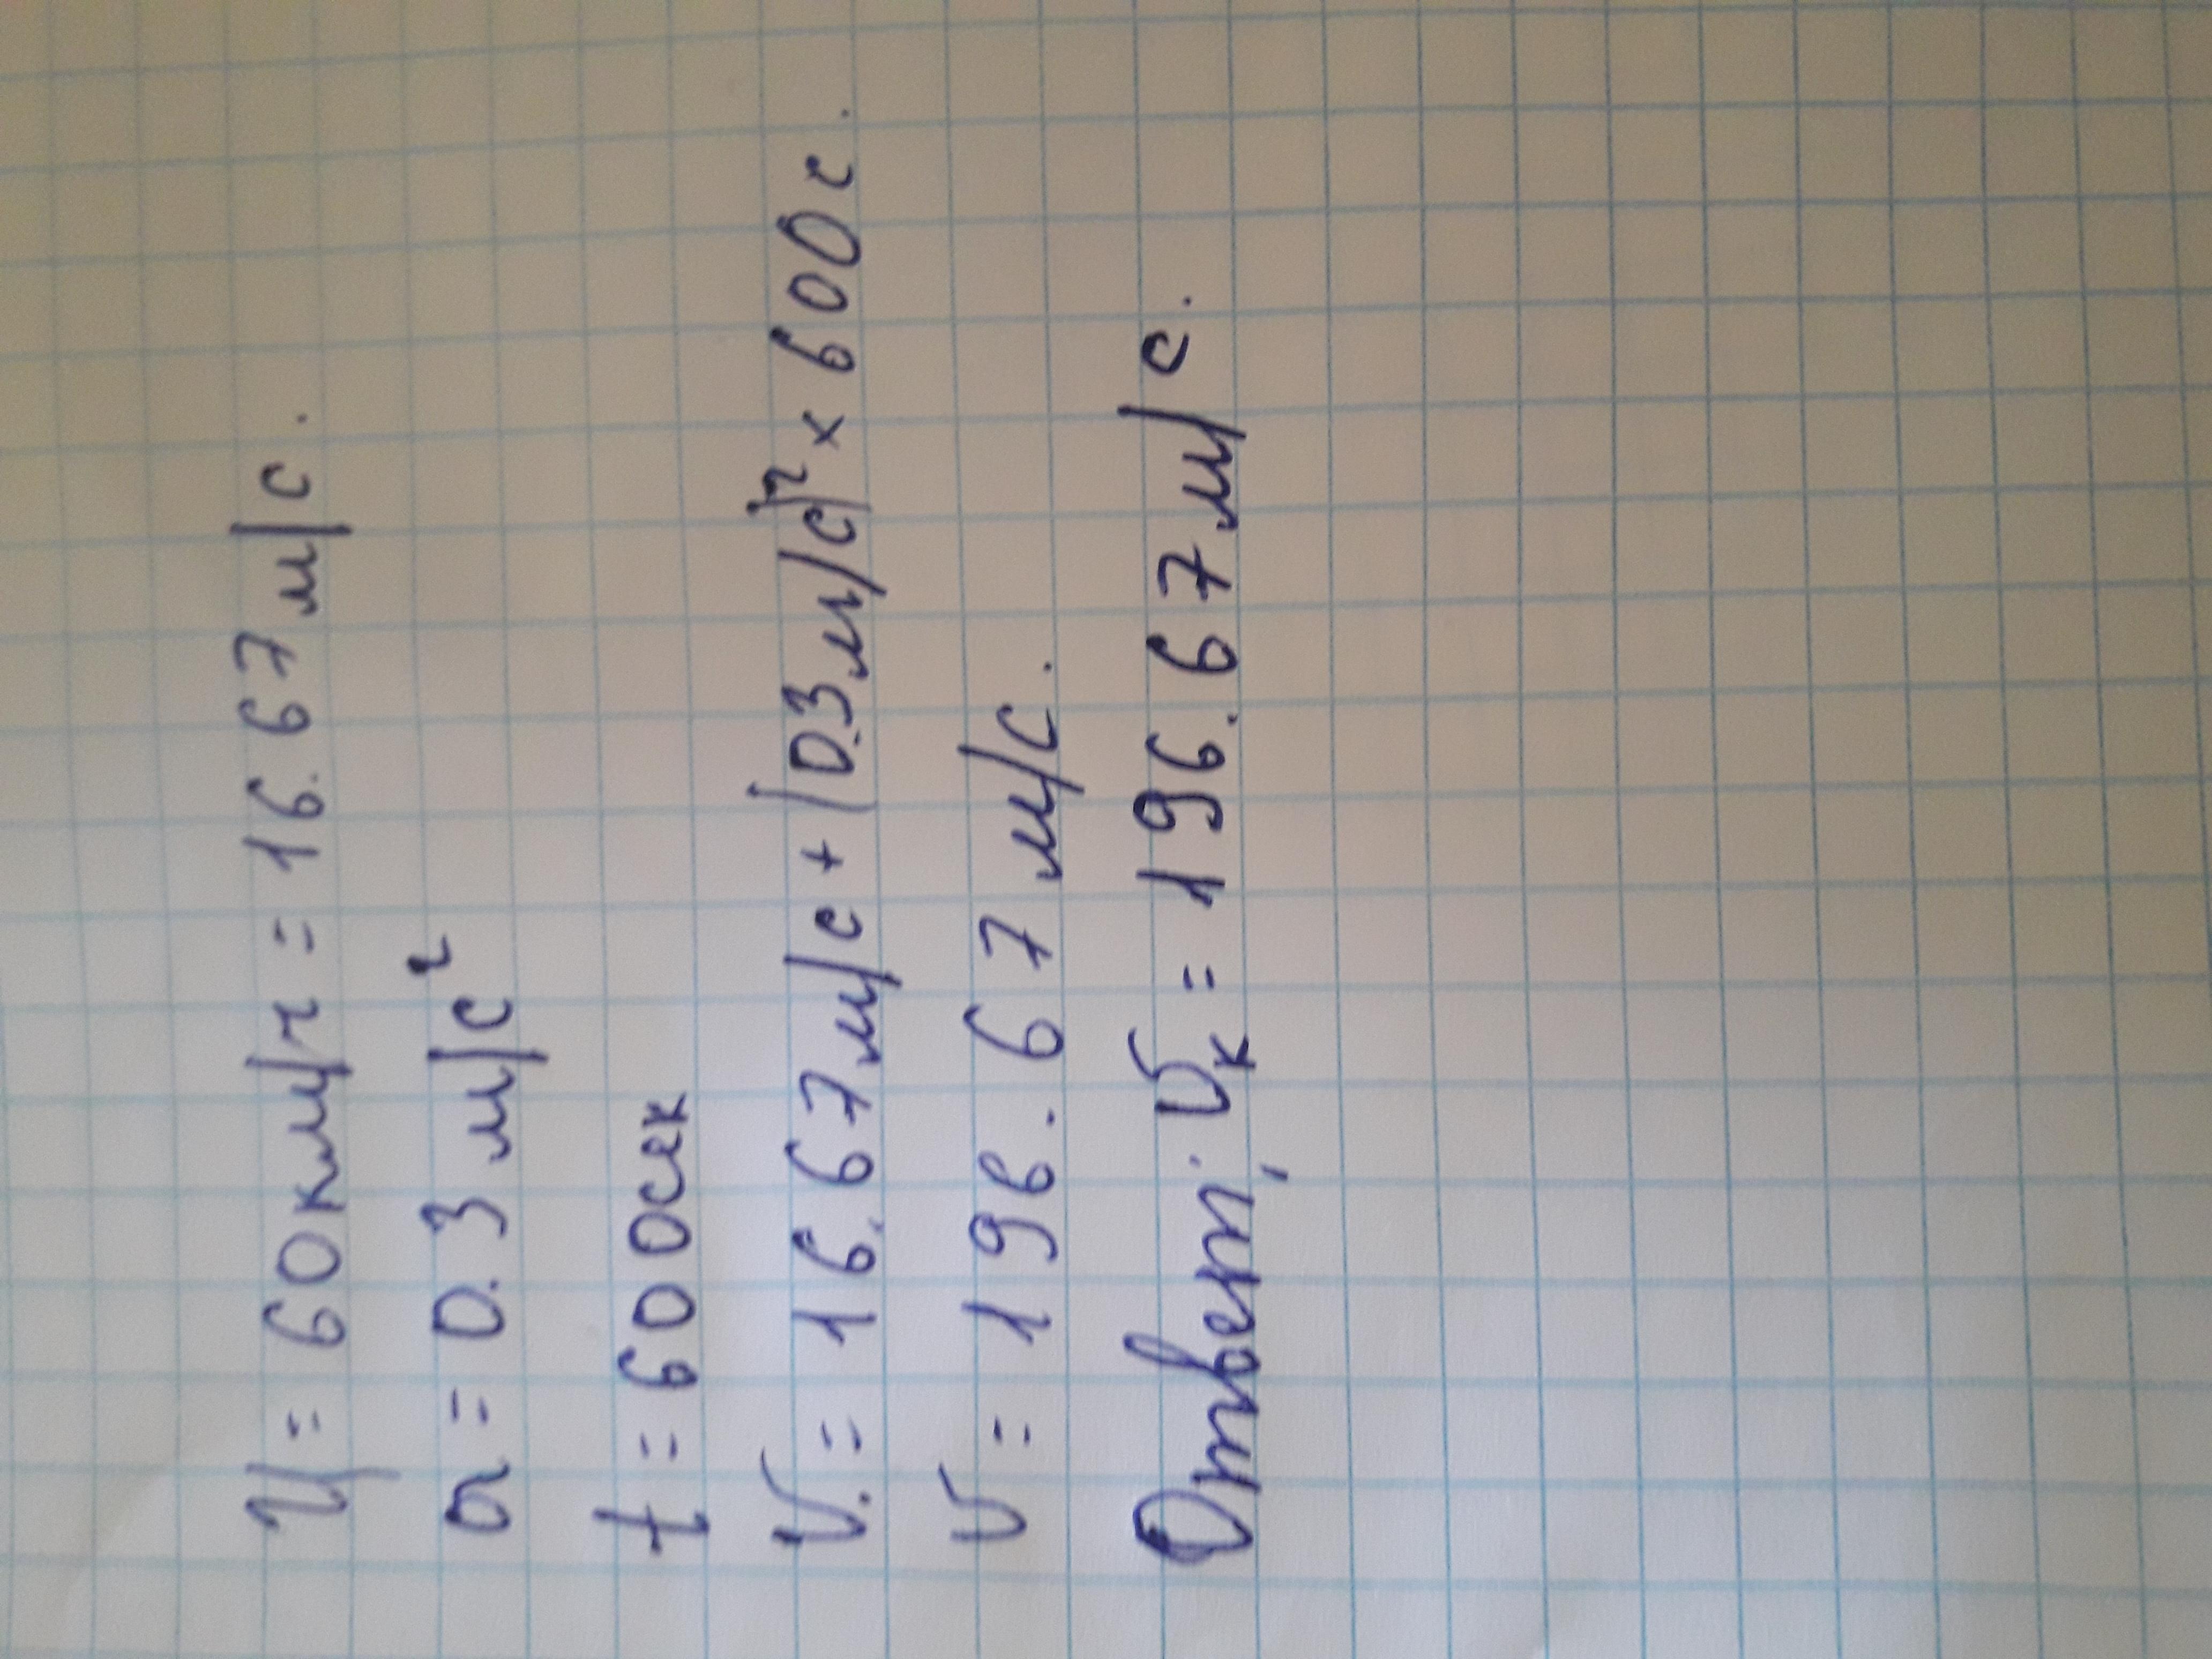 V = 60км/ч = 16.67м/с.
a = 0.3 м/с²
t = 600сек
V. = 16.67м/с + (0.3м/с)² × 600с.
V = 196.67 м/с.
Ответ: Vк = 196.67м/с.